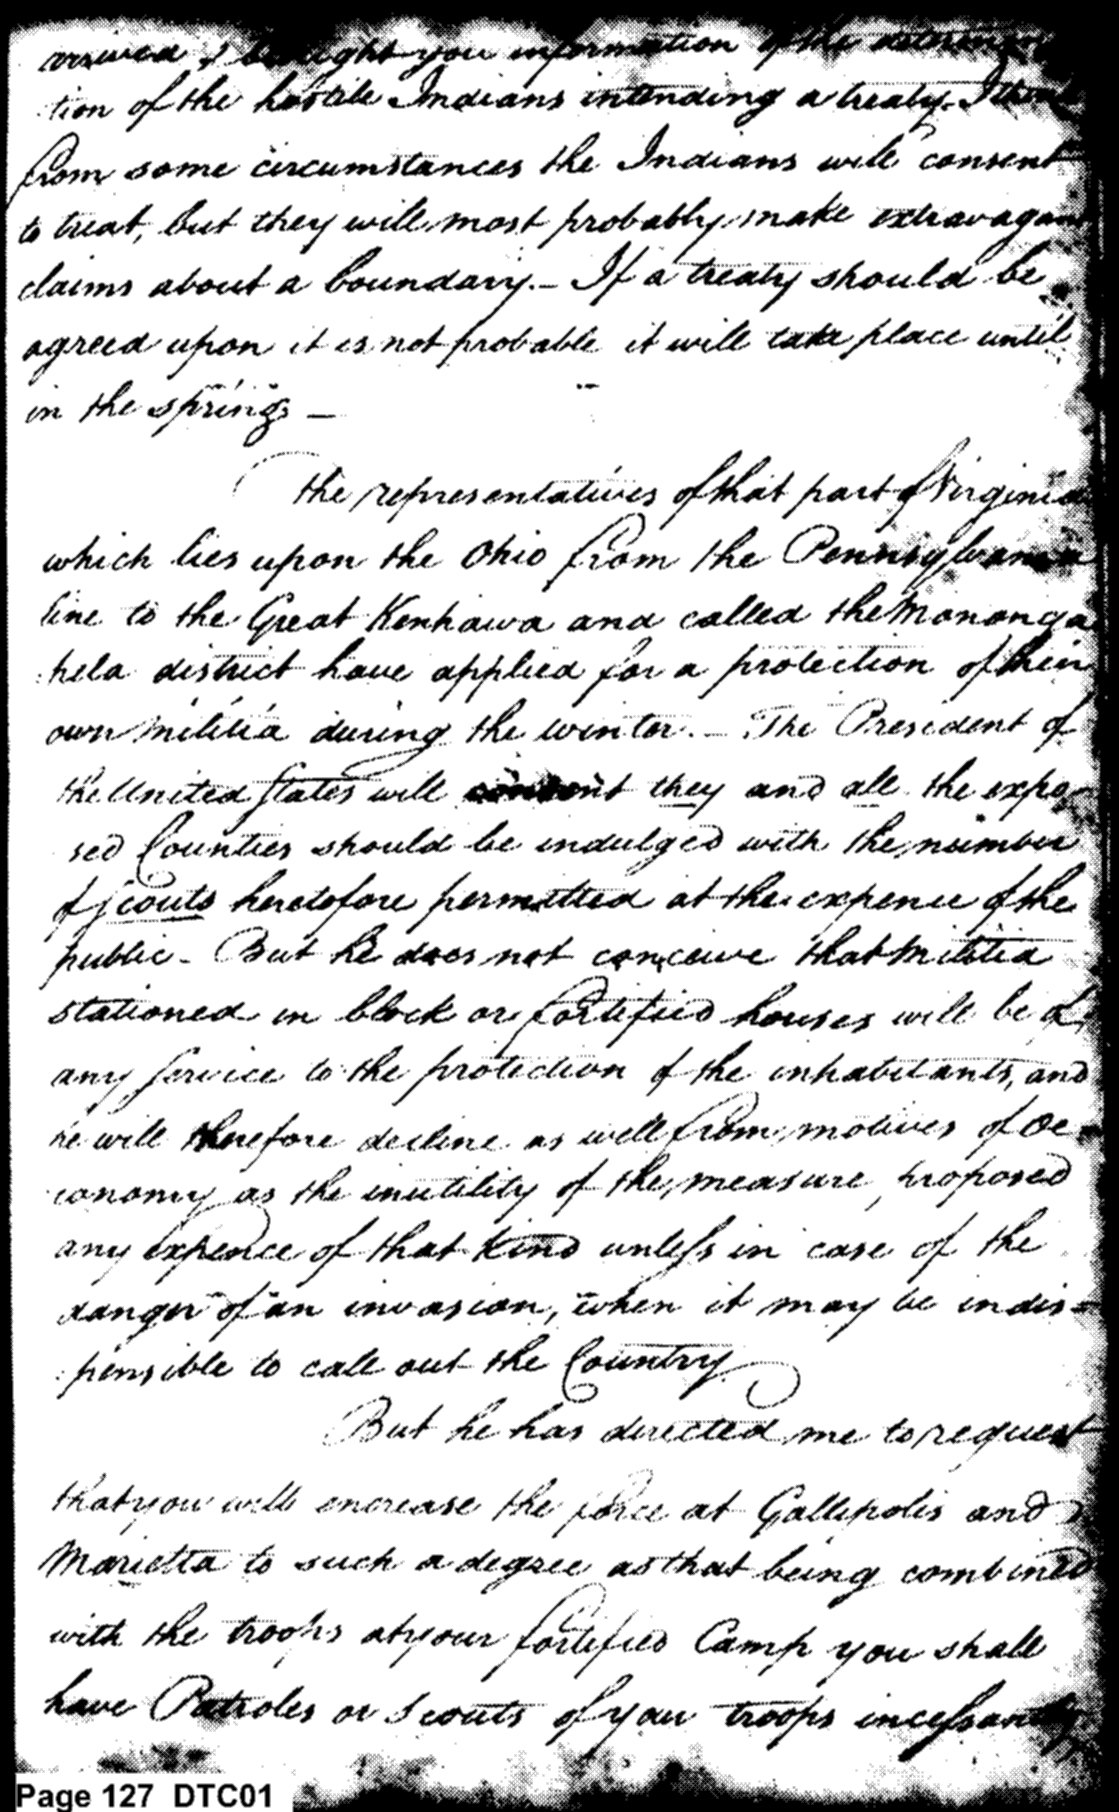 arrived & brought you information of the determina
tion of the hostile Indians intending a treaty. I think
from some circumstances the Indians will consent
to treat, but they will most probably make extravagant
claims about a boundary. – If a treaty should be
agreed upon it is not probable it will take place until
in the spring –
The representatives of that part of Virginia
which lies upon the Ohio from the Pennsylvania
line to the Great Kenhawa and called the Mononga
hela district have applied for a protection of their
own militia during the winter. – The President of
the United States will consent they and all the expo
sed Counties should be indulged with the number
of scouts heretofore permitted at the expence of the
public – But he does not conceive that Militia
stationed in block or fortified houses will be of
any service to the protection of the inhabitants, and
he will therefore decline as well from motives of Oe
conomy as the inutility of the measure, proposed
any expence of that kind unless in case of the
danger of an invasion, when it may be indis=
pensible to call out the Country
But he has directed me to request
that you will encrease the force at Gallipolis and
Marietta to such a degree as that being combined
with the troops at your fortified Camp you shall
have Patroles or Scouts of your troops incessantly
Page 127 DTC01